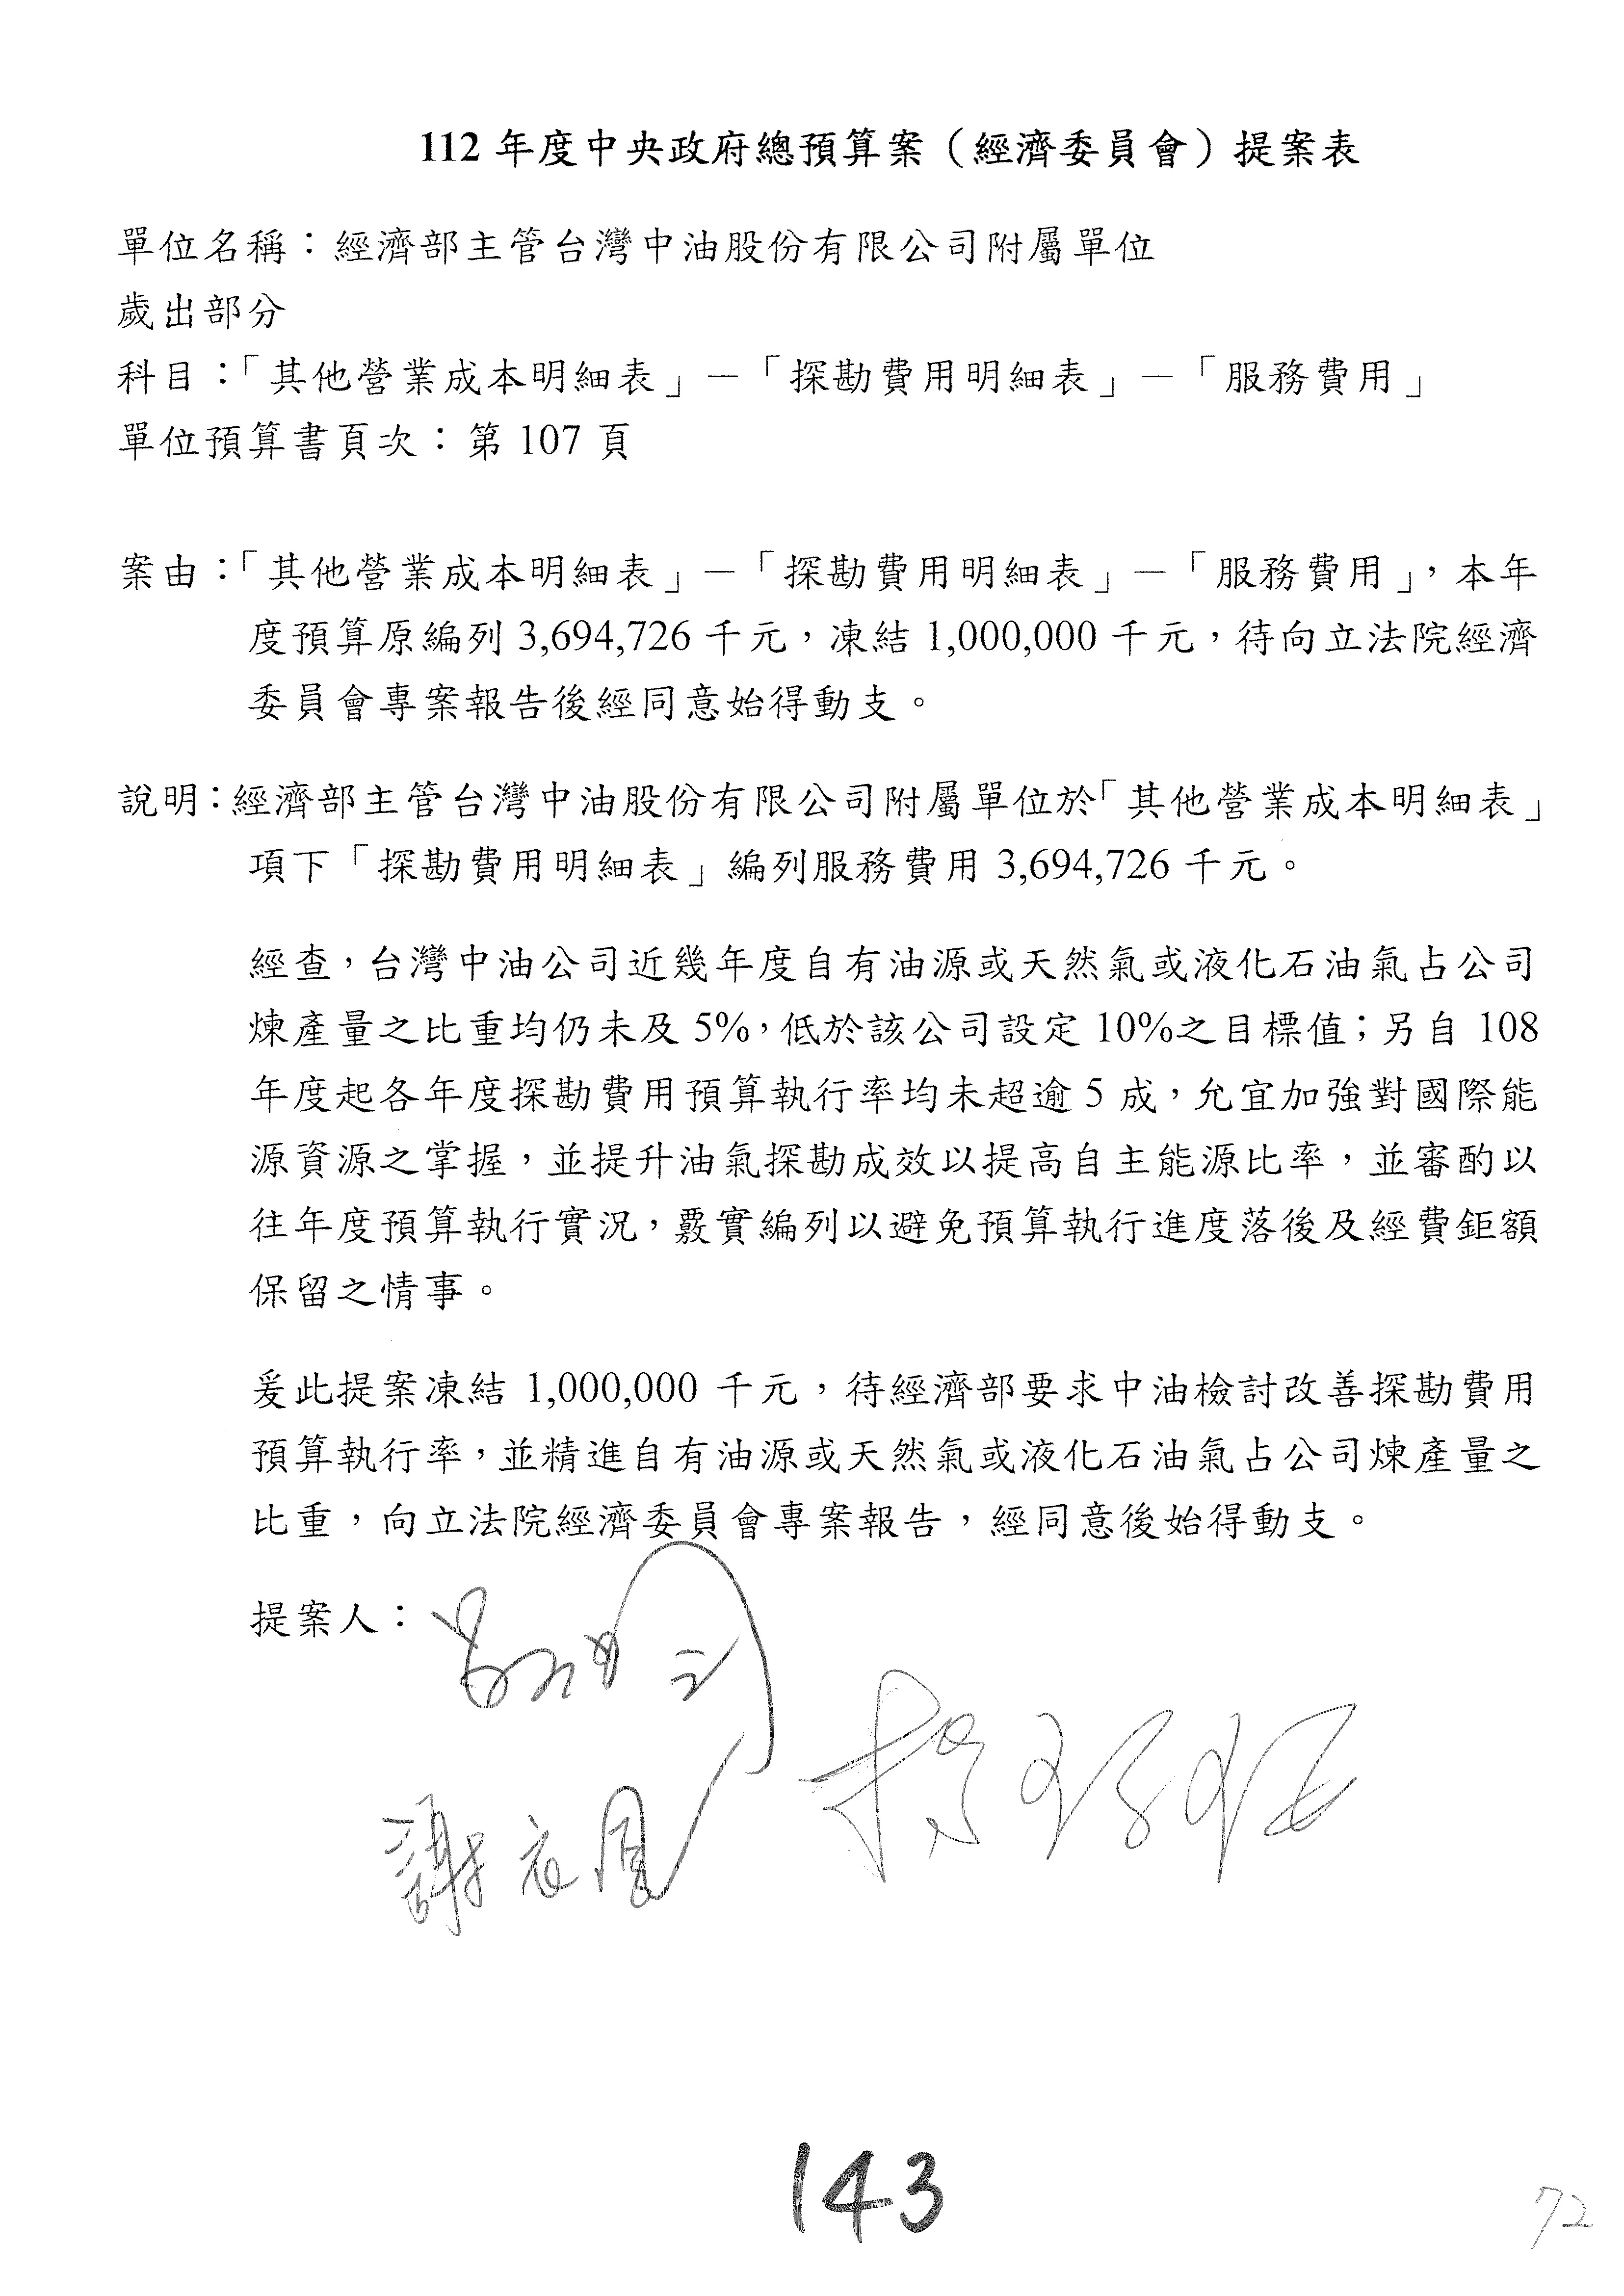 112 年度中央政府總預算案（經濟委員會）提案表
單位名稱：經濟部主管台灣中油股份有限公司附屬單位
歲出部分
科目：「其他營業成本明細表」－「探勘費用明細表」－「服務費用」
單位預算書頁次：第 107 頁
案由：「其他營業成本明細表」－「探勘費用明細表」－「服務費用」，本年
度預算原編列 3,694,726 千元，凍結 1,000,000 千元，待向立法院經濟
委員會專案報告後經同意始得動支。
說明：經濟部主管台灣中油股份有限公司附屬單位於「其他營業成本明細表」
項下「探勘費用明細表」編列服務費用 3,694,726 千元。
經查，台灣中油公司近幾年度自有油源或天然氣或液化石油氣占公司
煉產量之比重均仍未及 5%，低於該公司設定 10%之目標值；另自 108
年度起各年度探勘費用預算執行率均未超逾 5 成，允宜加強對國際能
源資源之掌握，並提升油氣探勘成效以提高自主能源比率，並審酌以
往年度預算執行實況，覈實編列以避免預算執行進度落後及經費鉅額
保留之情事。
爰此提案凍結 1,000,000 千元，待經濟部要求中油檢討改善探勘費用
預算執行率，並精進自有油源或天然氣或液化石油氣占公司煉產量之
比重，向立法院經濟委員會專案報告，經同意後始得動支。
提案人：
謝衣鳳
143
72